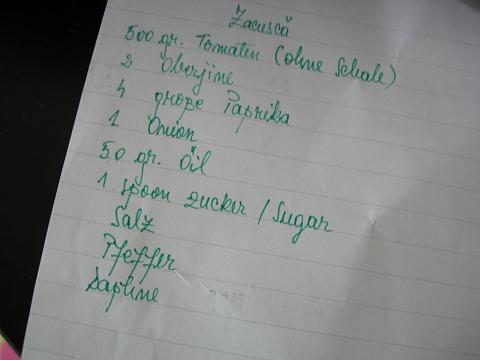 Zacuscă
500 gr. Tomaten (ohne Schale)
3 Oberjine
4 große Paprika
1 Onion
50 gr. Öil
1 spoon zucker / Sugar
Salz
Pfeffer